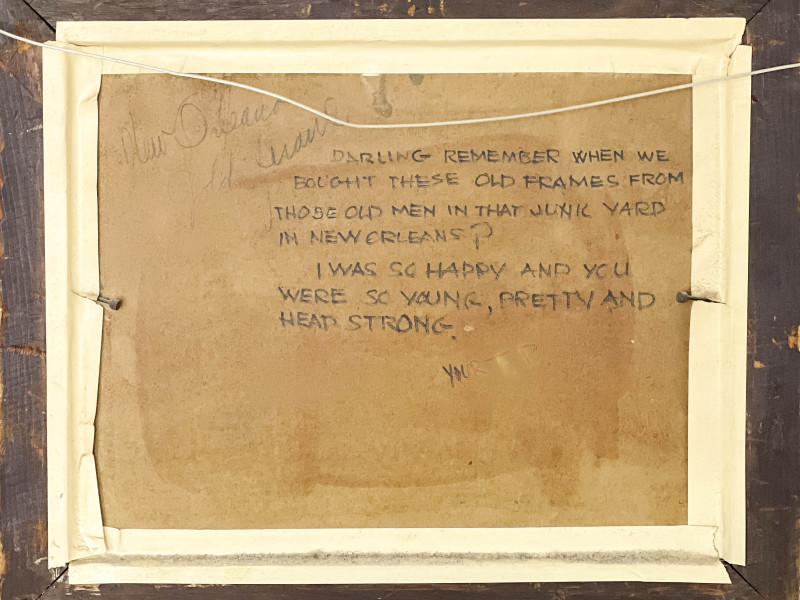 New Orleans
old
DARLING REMEMBER WHEN WE
BOUGHT THESE OLD FRAMES FROM
THOSE OLD MEN IN THAT JUNK YARD
IN NEW ORLEANS?
I WAS SO HAPPY AND YOU
WERE SO YOUNG, PRETTY AND
HEAD STRONG.